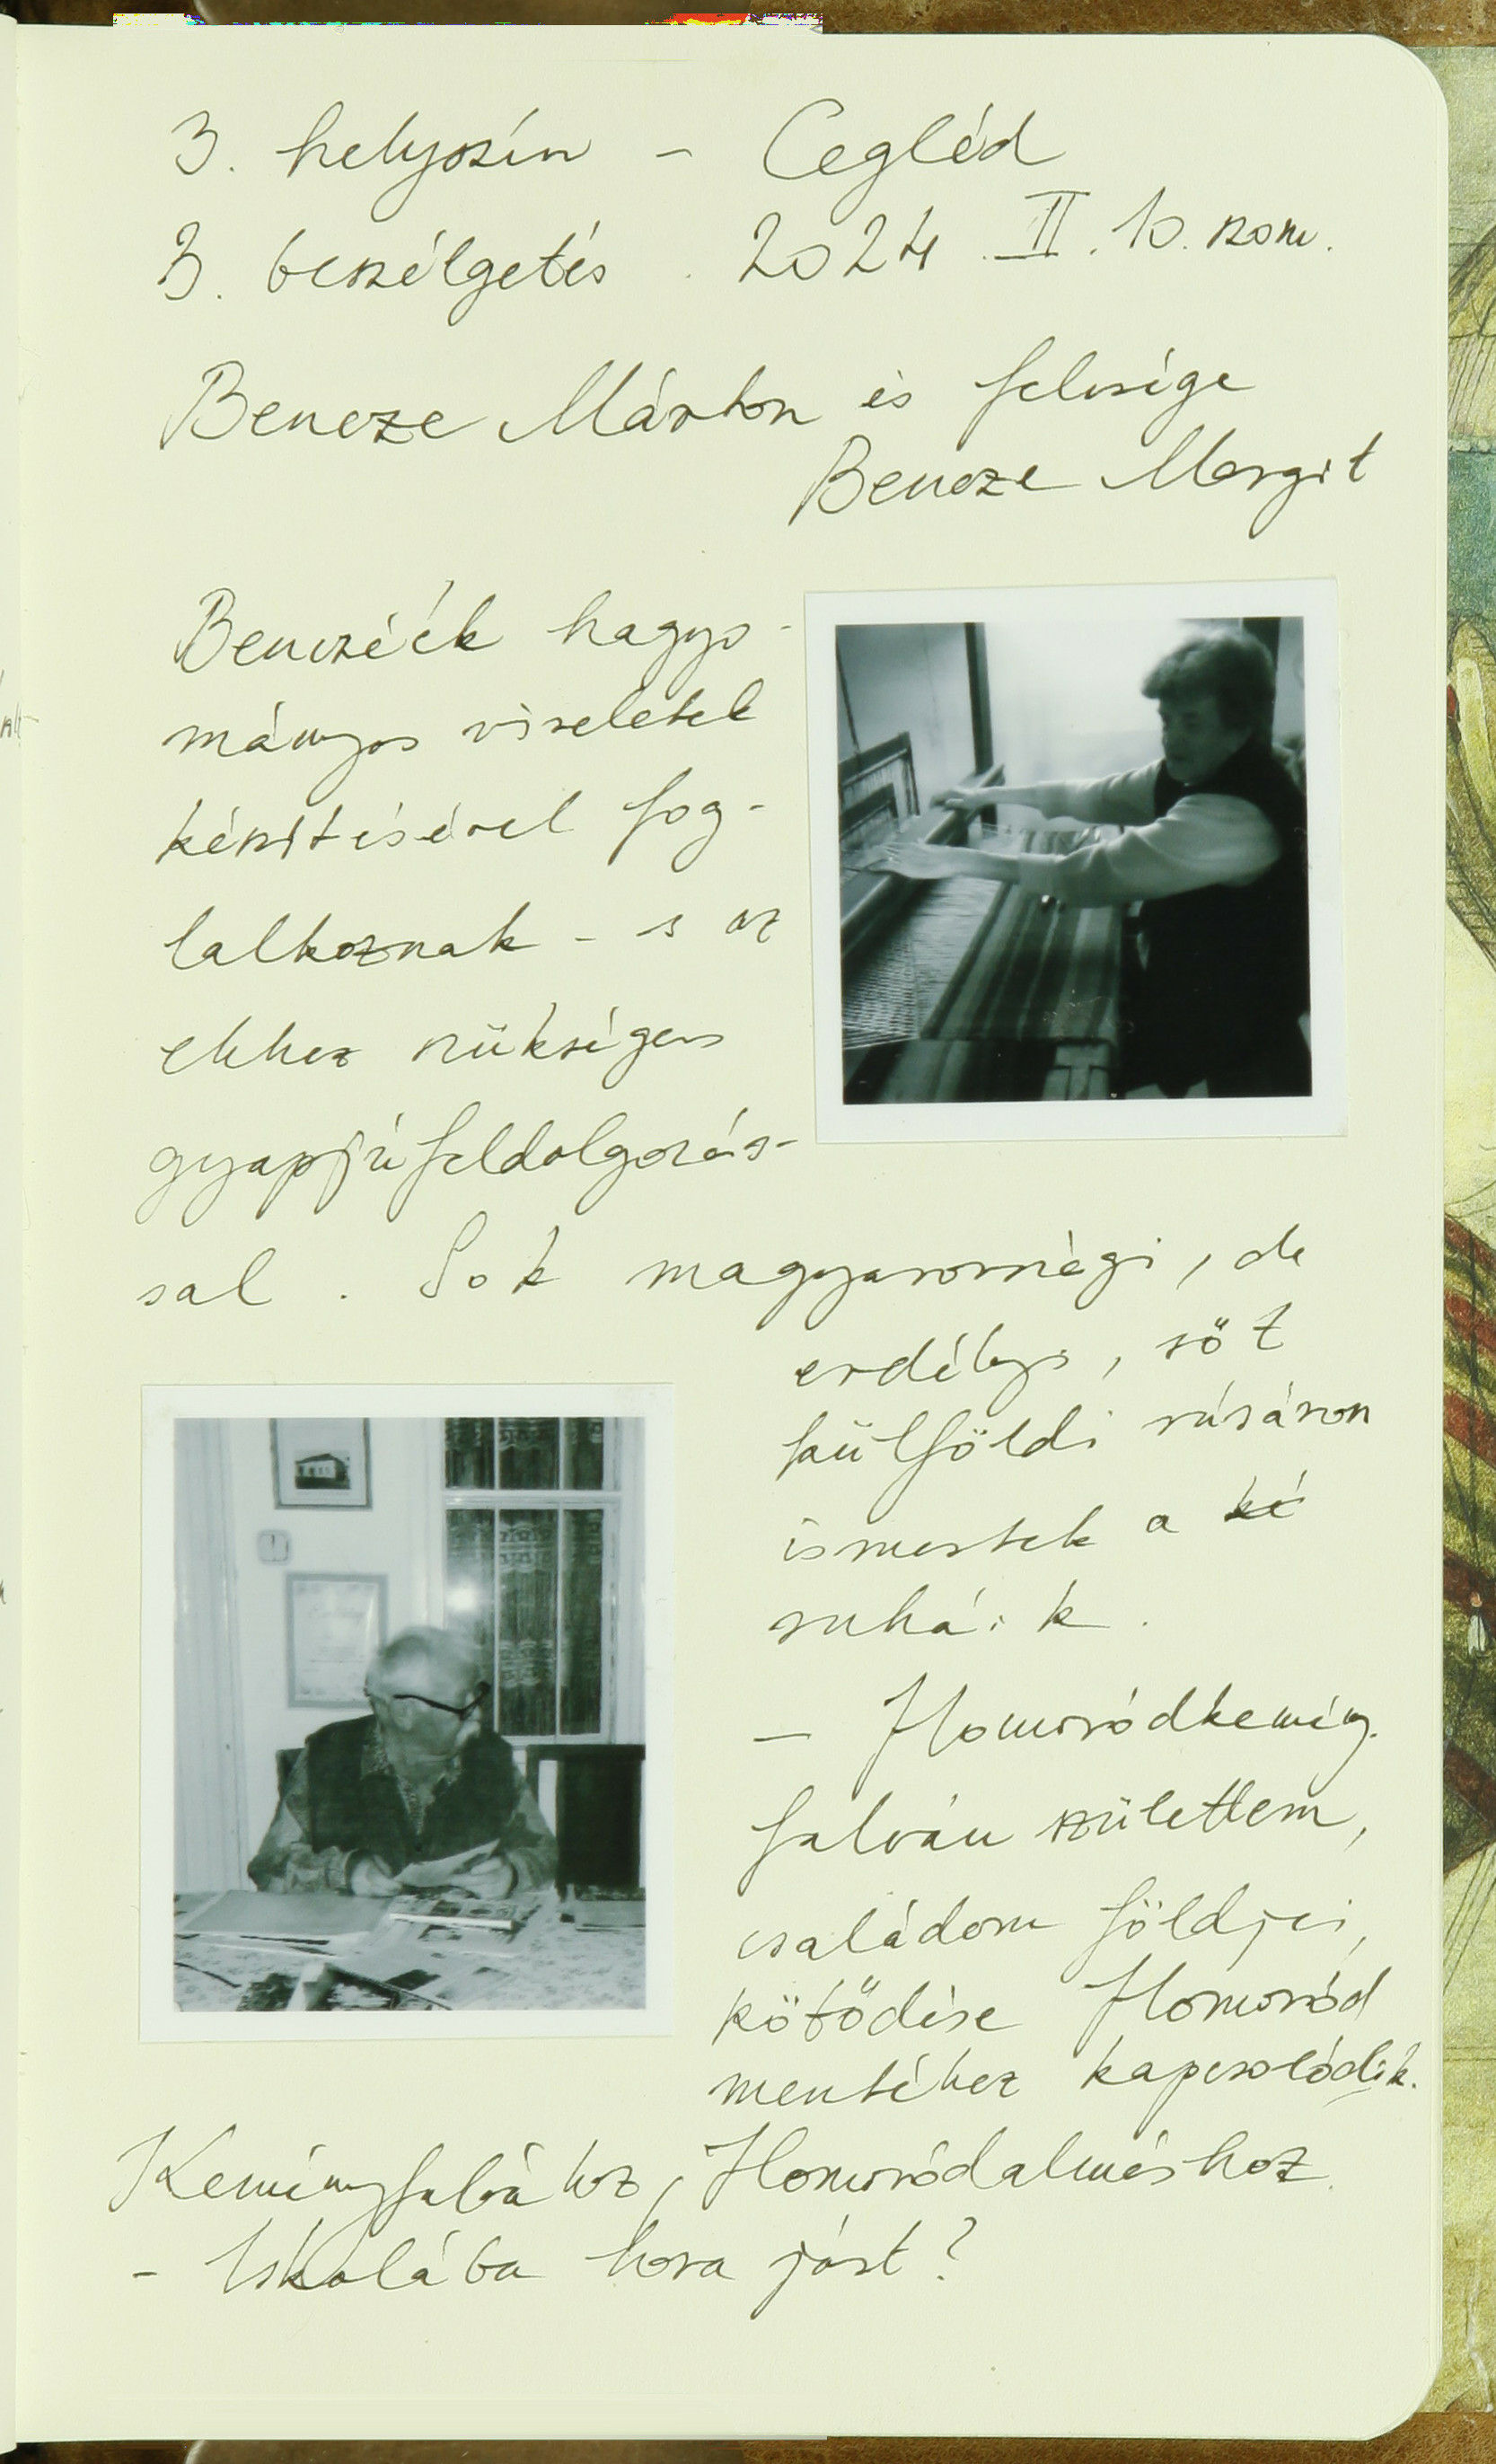 3. helyszín - Cegléd
3. beszélgetés . 2024. II. 10. szom.
Bencze Márton és felesége
Bencze Margit
Benczéék hagyo-
mányos viseletek
készítésével fog-
lalkoznak - s az
ehhez szükséges
gyapjúfeldolgozás-
sal. Sok magyarországi, de
erdélyi, sőt
külföldi vásáron
ismertek a ké
ruháik.
- Homoródkemény-
falván születtem,
családom földjei,
kötődése Homoród
mentéhez kapcsolódik.
Keményfalvához, Homoródalmáshoz.
- Iskolába hova járt?